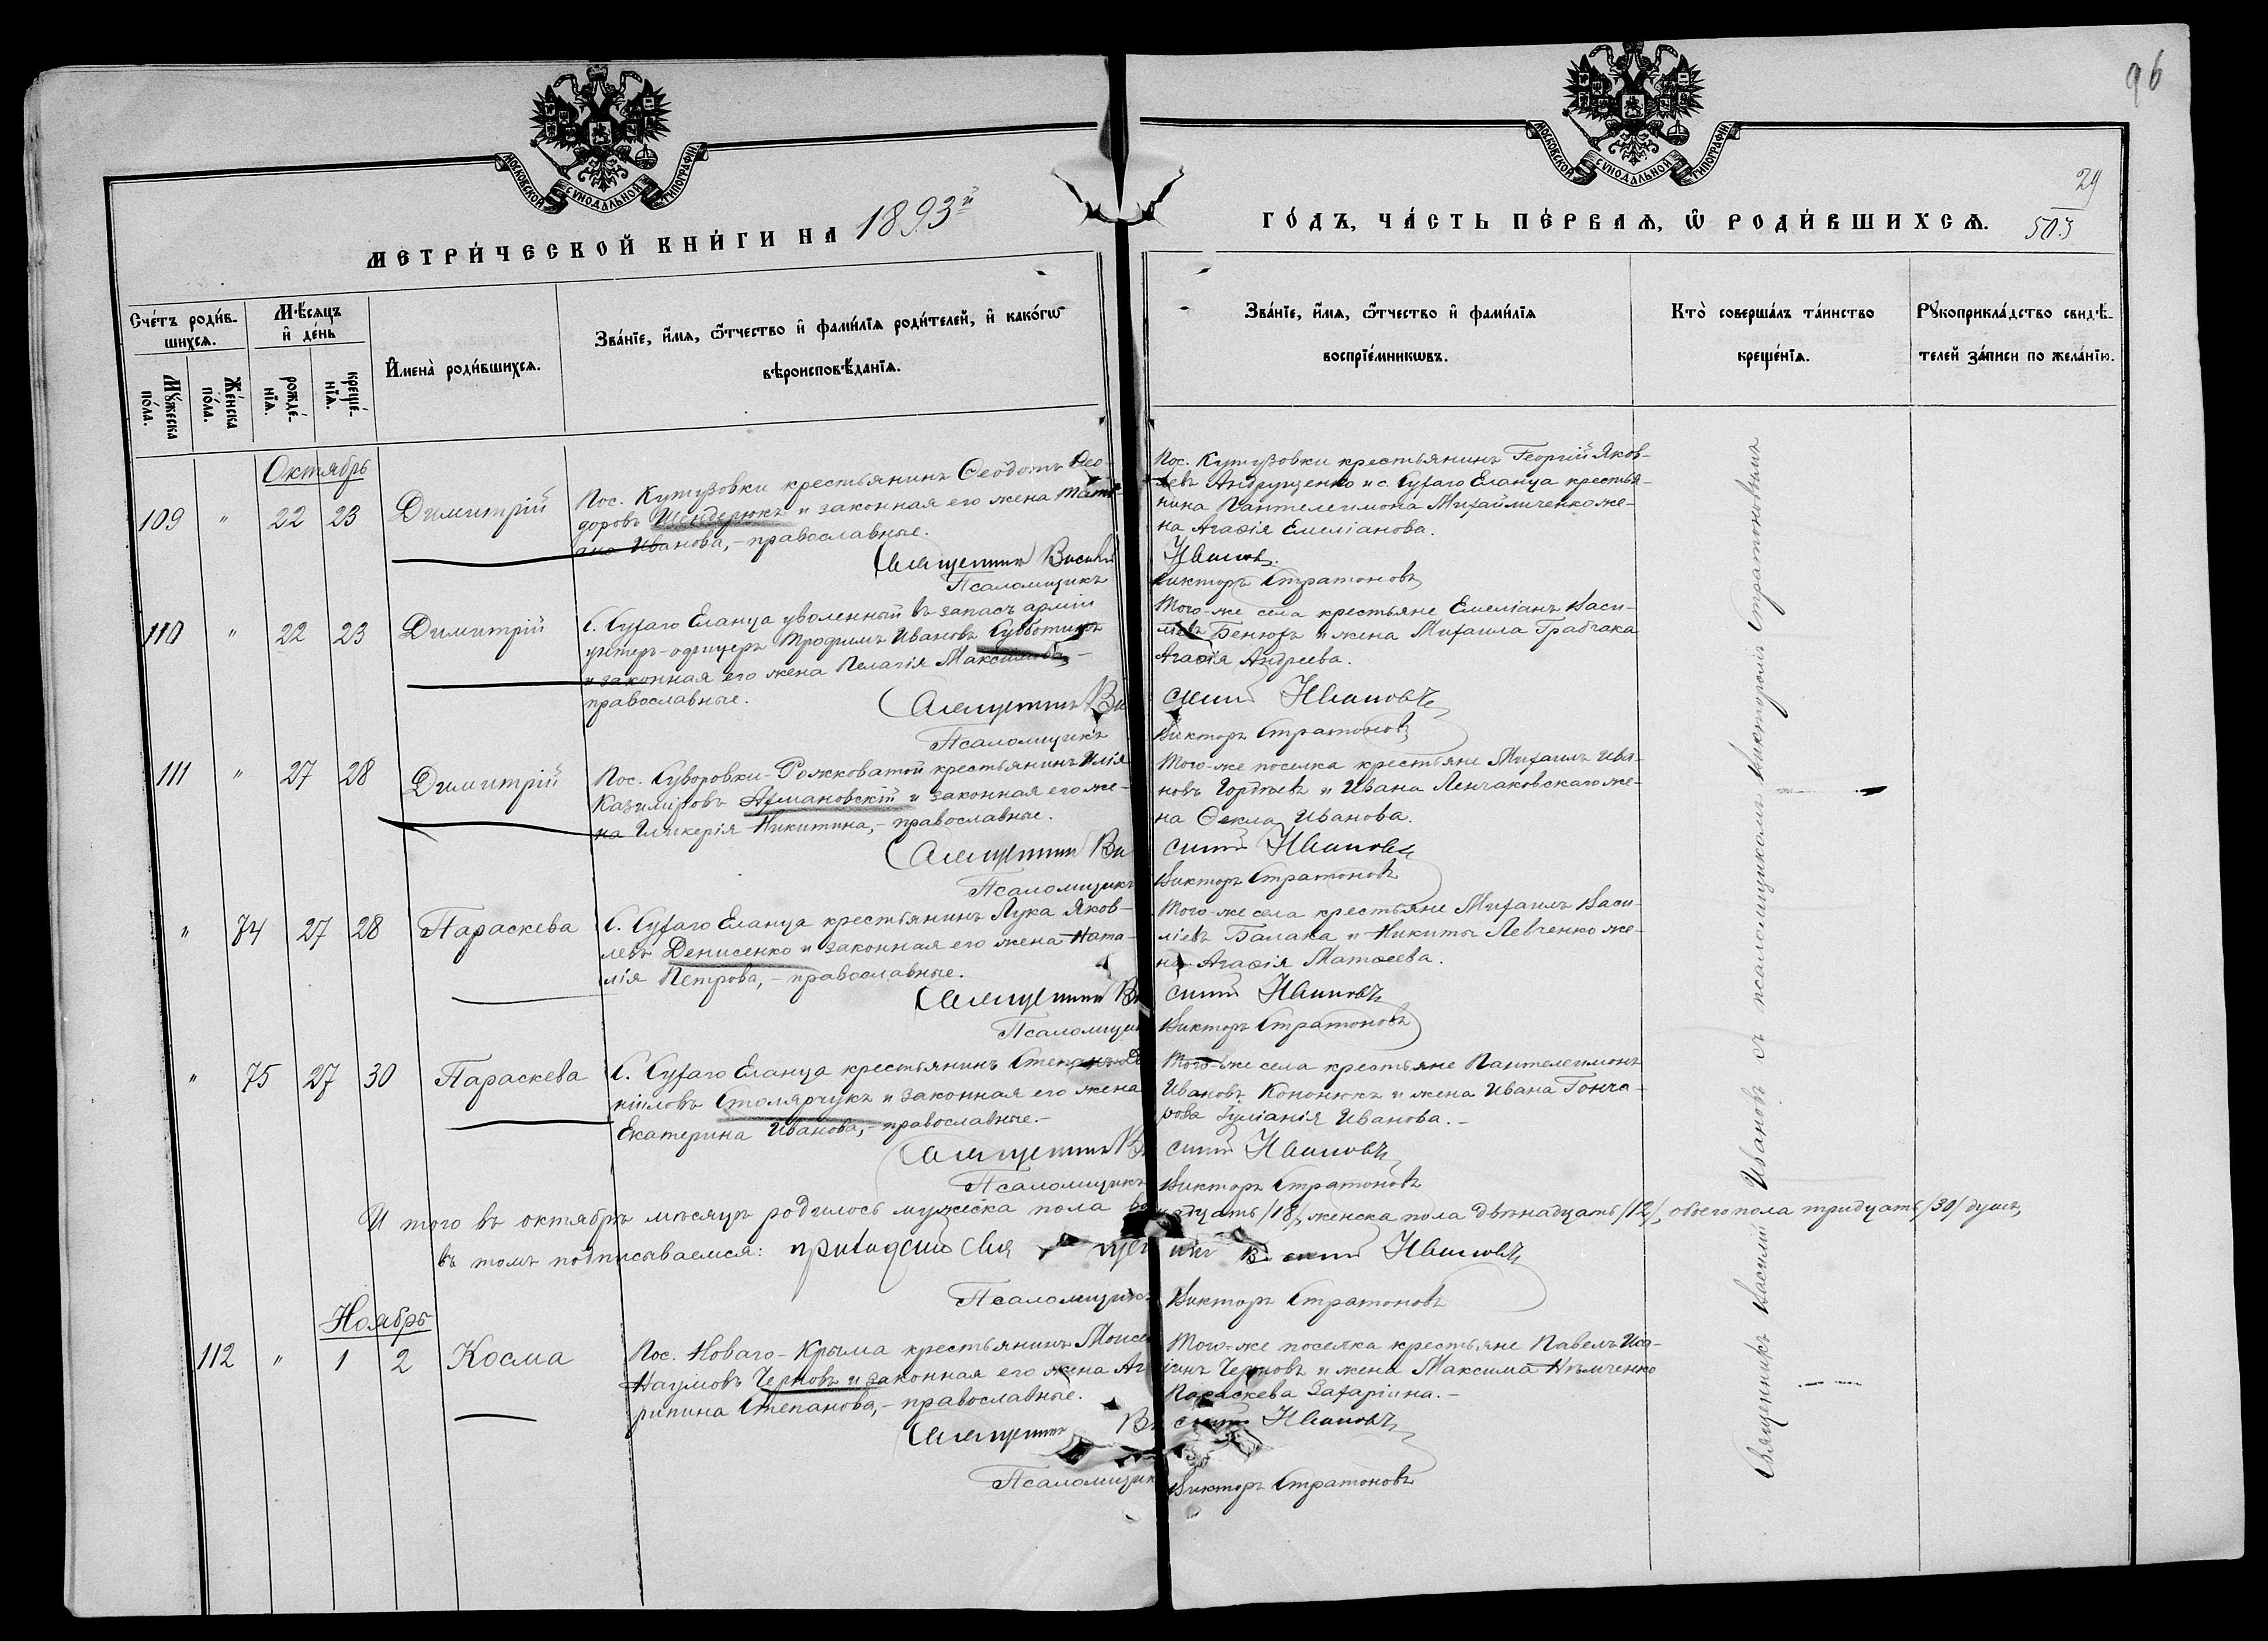 96
МОСКОВСКОЙ СѴНОДАЛЬНОЙ ТИПОГРАФІИ.
МОСКОВСКОЙ СѴНОДАЛЬНОЙ ТИПОГРАФІИ.
29
503
МЕТРИ́ЧЕСКОЙ КНИ́ГИ НА 1893й
ГО́ДЪ, ЧА́СТЬ ПЕ́РВАѦ, Ѽ РОДИ́ВШИХСѦ.
Сче́тъ роди́в-
шихсѧ.
Мꙋ́жеска
по́ла.
Же́нска
по́ла.
Мѣ́сѧцъ
и҆ де́нь
рожде́-
нїѧ.
креще́-
нїѧ.
И҆мена̀ роди́вшихсѧ.
Зва́нїе, и҆́мѧ, ѻ҆́тчество и҆ фами́лїѧ роди́телей, и҆ како́гѡ
вѣроисповѣ́данїѧ.
Зва́нїе, и҆́мѧ, ѻ҆́тчество и҆ фами́лїѧ
воспрїе́мникѡвъ.
Кто̀ соверша́лъ та́инство
креще́нїѧ.
Рꙋкоприкла́дство свидѣ́-
телей за́писи по жела́нїю.
Октябрь
109 " 22 23 Димитрій
Пос. Кутузовки крестьянинъ Ѳеодотъ Ѳео-
доровъ Шендерюкъ и законная его жена Тать-
ана Иванова, – православные.
Священникъ Василій
Псаломщикъ
Пос. Кутузовки крестьянинъ Георгій Яков-
левъ Андрущенко и с. Сухаго Еланца крестья-
нина Пантелеимона Михайличенко же-
на Агафія Емеліанова.
Ивановъ.
Викторъ Стратоновъ
110 " 22 23 Димитрій
С. Сухаго Еланца уволенный въ запасъ арміи
унтеръ-офицеръ Трофимъ Ивановъ Субботинъ
и законная его жена Пелагія Максимова –
православные.
Священникъ Ва
Псаломщикъ
Того-же села крестьяне Емеліанъ Васи-
ліевъ Бенюхъ и жена Михаила Грабчака
Агафія Андреева.
силій Ивановъ
Викторъ Стратоновъ
111 " 27 28 Димитрій
Пос. Суворовки-Рожковатой крестьянинъ Илія
Казиміровъ Ахмановскій и законная его же-
на Гликерія Никитина, – православные.
Священникъ Ва
Псаломщикъ
Того-же поселка крестьяне Михаилъ Ива-
новъ Гордѣевъ и Ивана Ленчаковскаго же-
на Ѳекла Иванова.
силій Ивановъ
Викторъ Стратоновъ
" 74 27 28 Параскева
С. Сухаго Еланца крестьянинъ Лука Яков-
левъ Денисенко и законная его жена Ната-
лія Петрова, – православные.
Священникъ Ва
Псаломщик
Того-же села крестьяне Михаилъ Васи-
ліевъ Балака и Никиты Левченко же-
на Агафія Матѳеева.
силій Ивановъ
Викторъ Стратоновъ
" 75 27 30 Параскева
С. Сухаго Еланца крестьянинъ Степанъ Да
ніиловъ Столярчукъ и законная его жена
Екатерина Иванова, – православные. –
Священникъ Ва
Псаломщикъ
Того-же села крестьяне Пантелеимонъ
Ивановъ Кононюкъ и жена Ивана Гонча-
рова Іуліанія Иванова. –
силій Ивановъ
Викторъ Стратоновъ
И того въ октябрѣ мѣсяцѣ родилось мужеска пола во надцать /18/, женска пола двѣнадцать /12/, обоего пола тридцать /30/ душъ,
въ томъ подписываемся: приходскій Свя щен никъ Ва силій Ивановъ
Псаломщикъ Викторъ Стратоновъ
Ноябрь
112 " 1 2 Косма
Пос. Новаго-Крыма крестьянинъ Моисе
Наумовъ Черновъ и законная его жена Аг
рипина Степанова, – православные.
Священникъ Ва
Псаломщик
Того-же поселка крестьяне Павелъ Иса-
інъ Черновъ и жена Максима Нѣмченко
Параскева Захаріина. –
силій Ивановъ
Викторъ Стратоновъ
Священникъ Василій Ивановъ съ псаломщикомъ Викторомъ Стратоновымъ